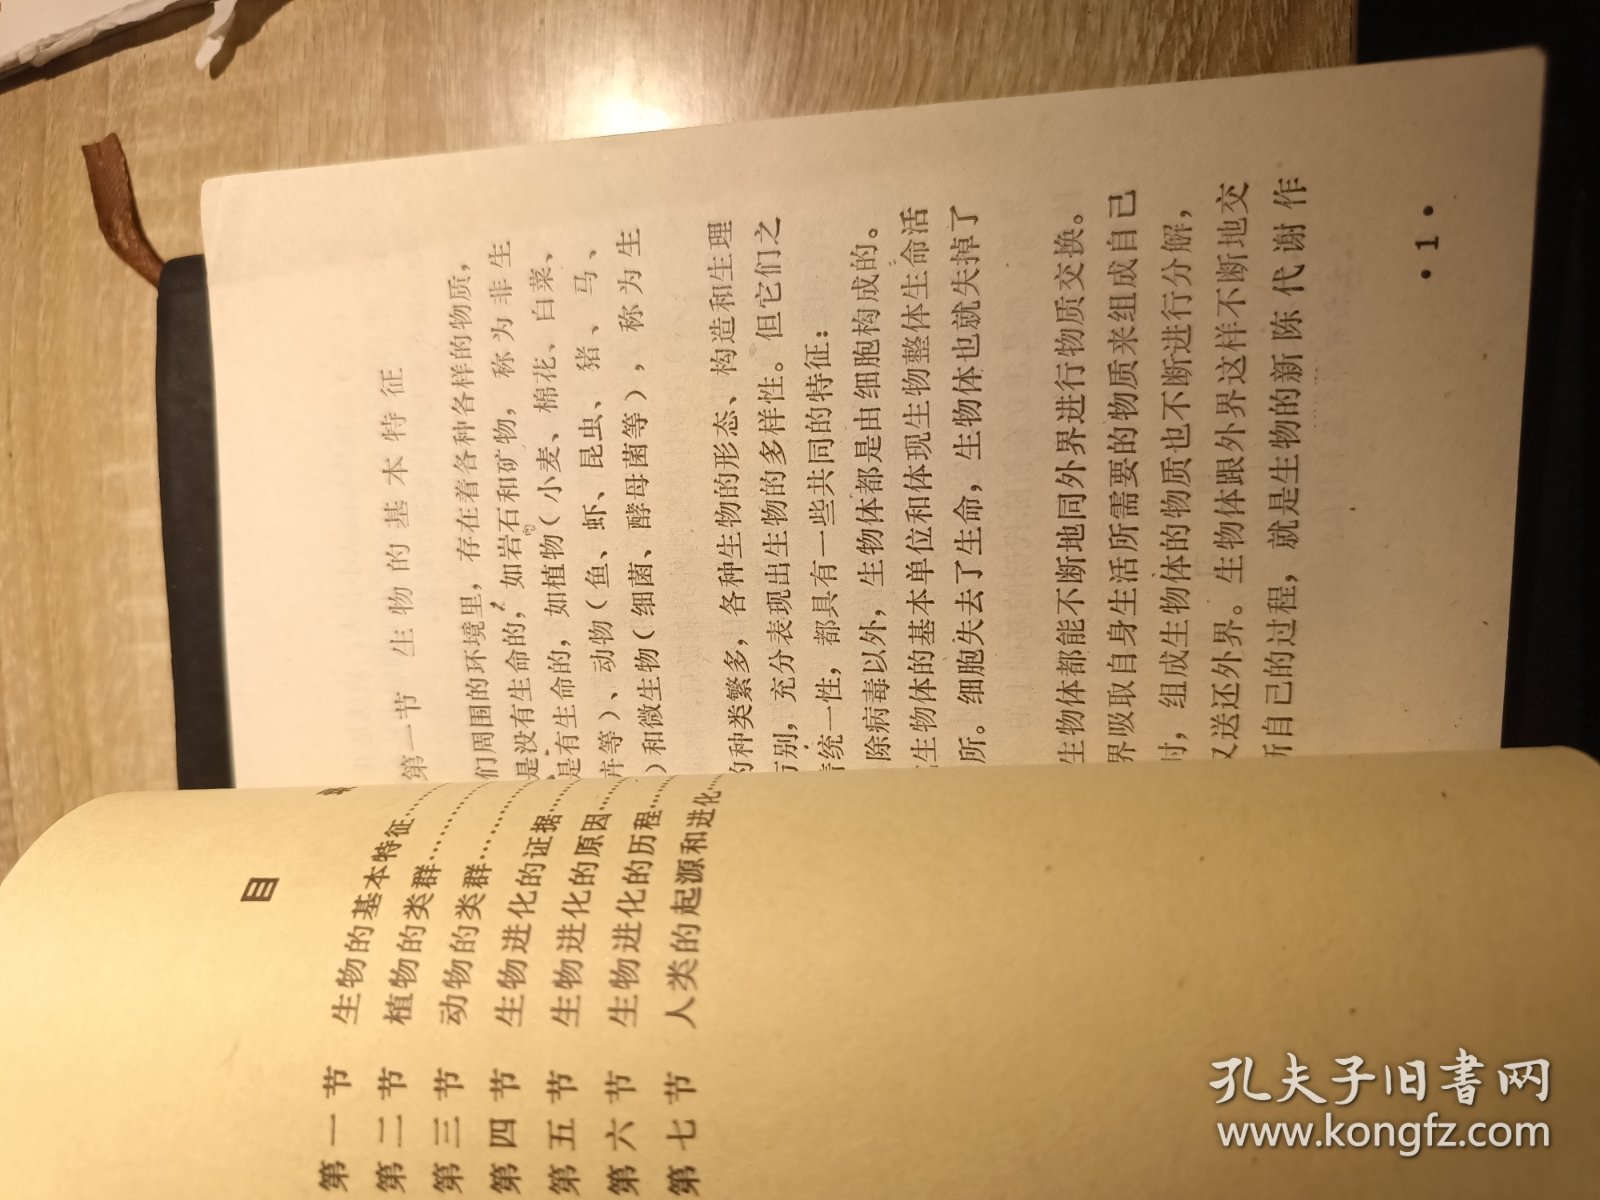 目
第一节 生物的基本特征……
第二节 植物的类群…………
第三节 动物的类群…………
第四节 生物进化的证据……
第五节 生物进化的原因……
第六节 生物进化的历程……
第七节 人类的起源和进化…
第一节 生物的基本特征
们周围的环境里，存在着各种各样的物质，
是没有生命的，如岩石和矿物，称为非生
是有生命的，如植物（小麦、棉花、白菜、
卉等）、动物（鱼、虾、昆虫、猪、马、
）和微生物（细菌、酵母菌等），称为生
的种类繁多，各种生物的形态、构造和生理
有别，充分表现出生物的多样性。但它们之
统一性，都具有一些共同的特征：
除病毒以外，生物体都是由细胞构成的。
生物体的基本单位和体现生物整体生命活
所。细胞失去了生命，生物体也就失掉了
生物体都能不断地同外界进行物质交换。
界吸取自身生活所需要的物质来组成自己
时，组成生物体的物质也不断进行分解，
又送还外界。生物体跟外界这样不断地交
新自己的过程，就是生物的新陈代谢作
•1•
孔夫子旧书网
www.kongfz.com